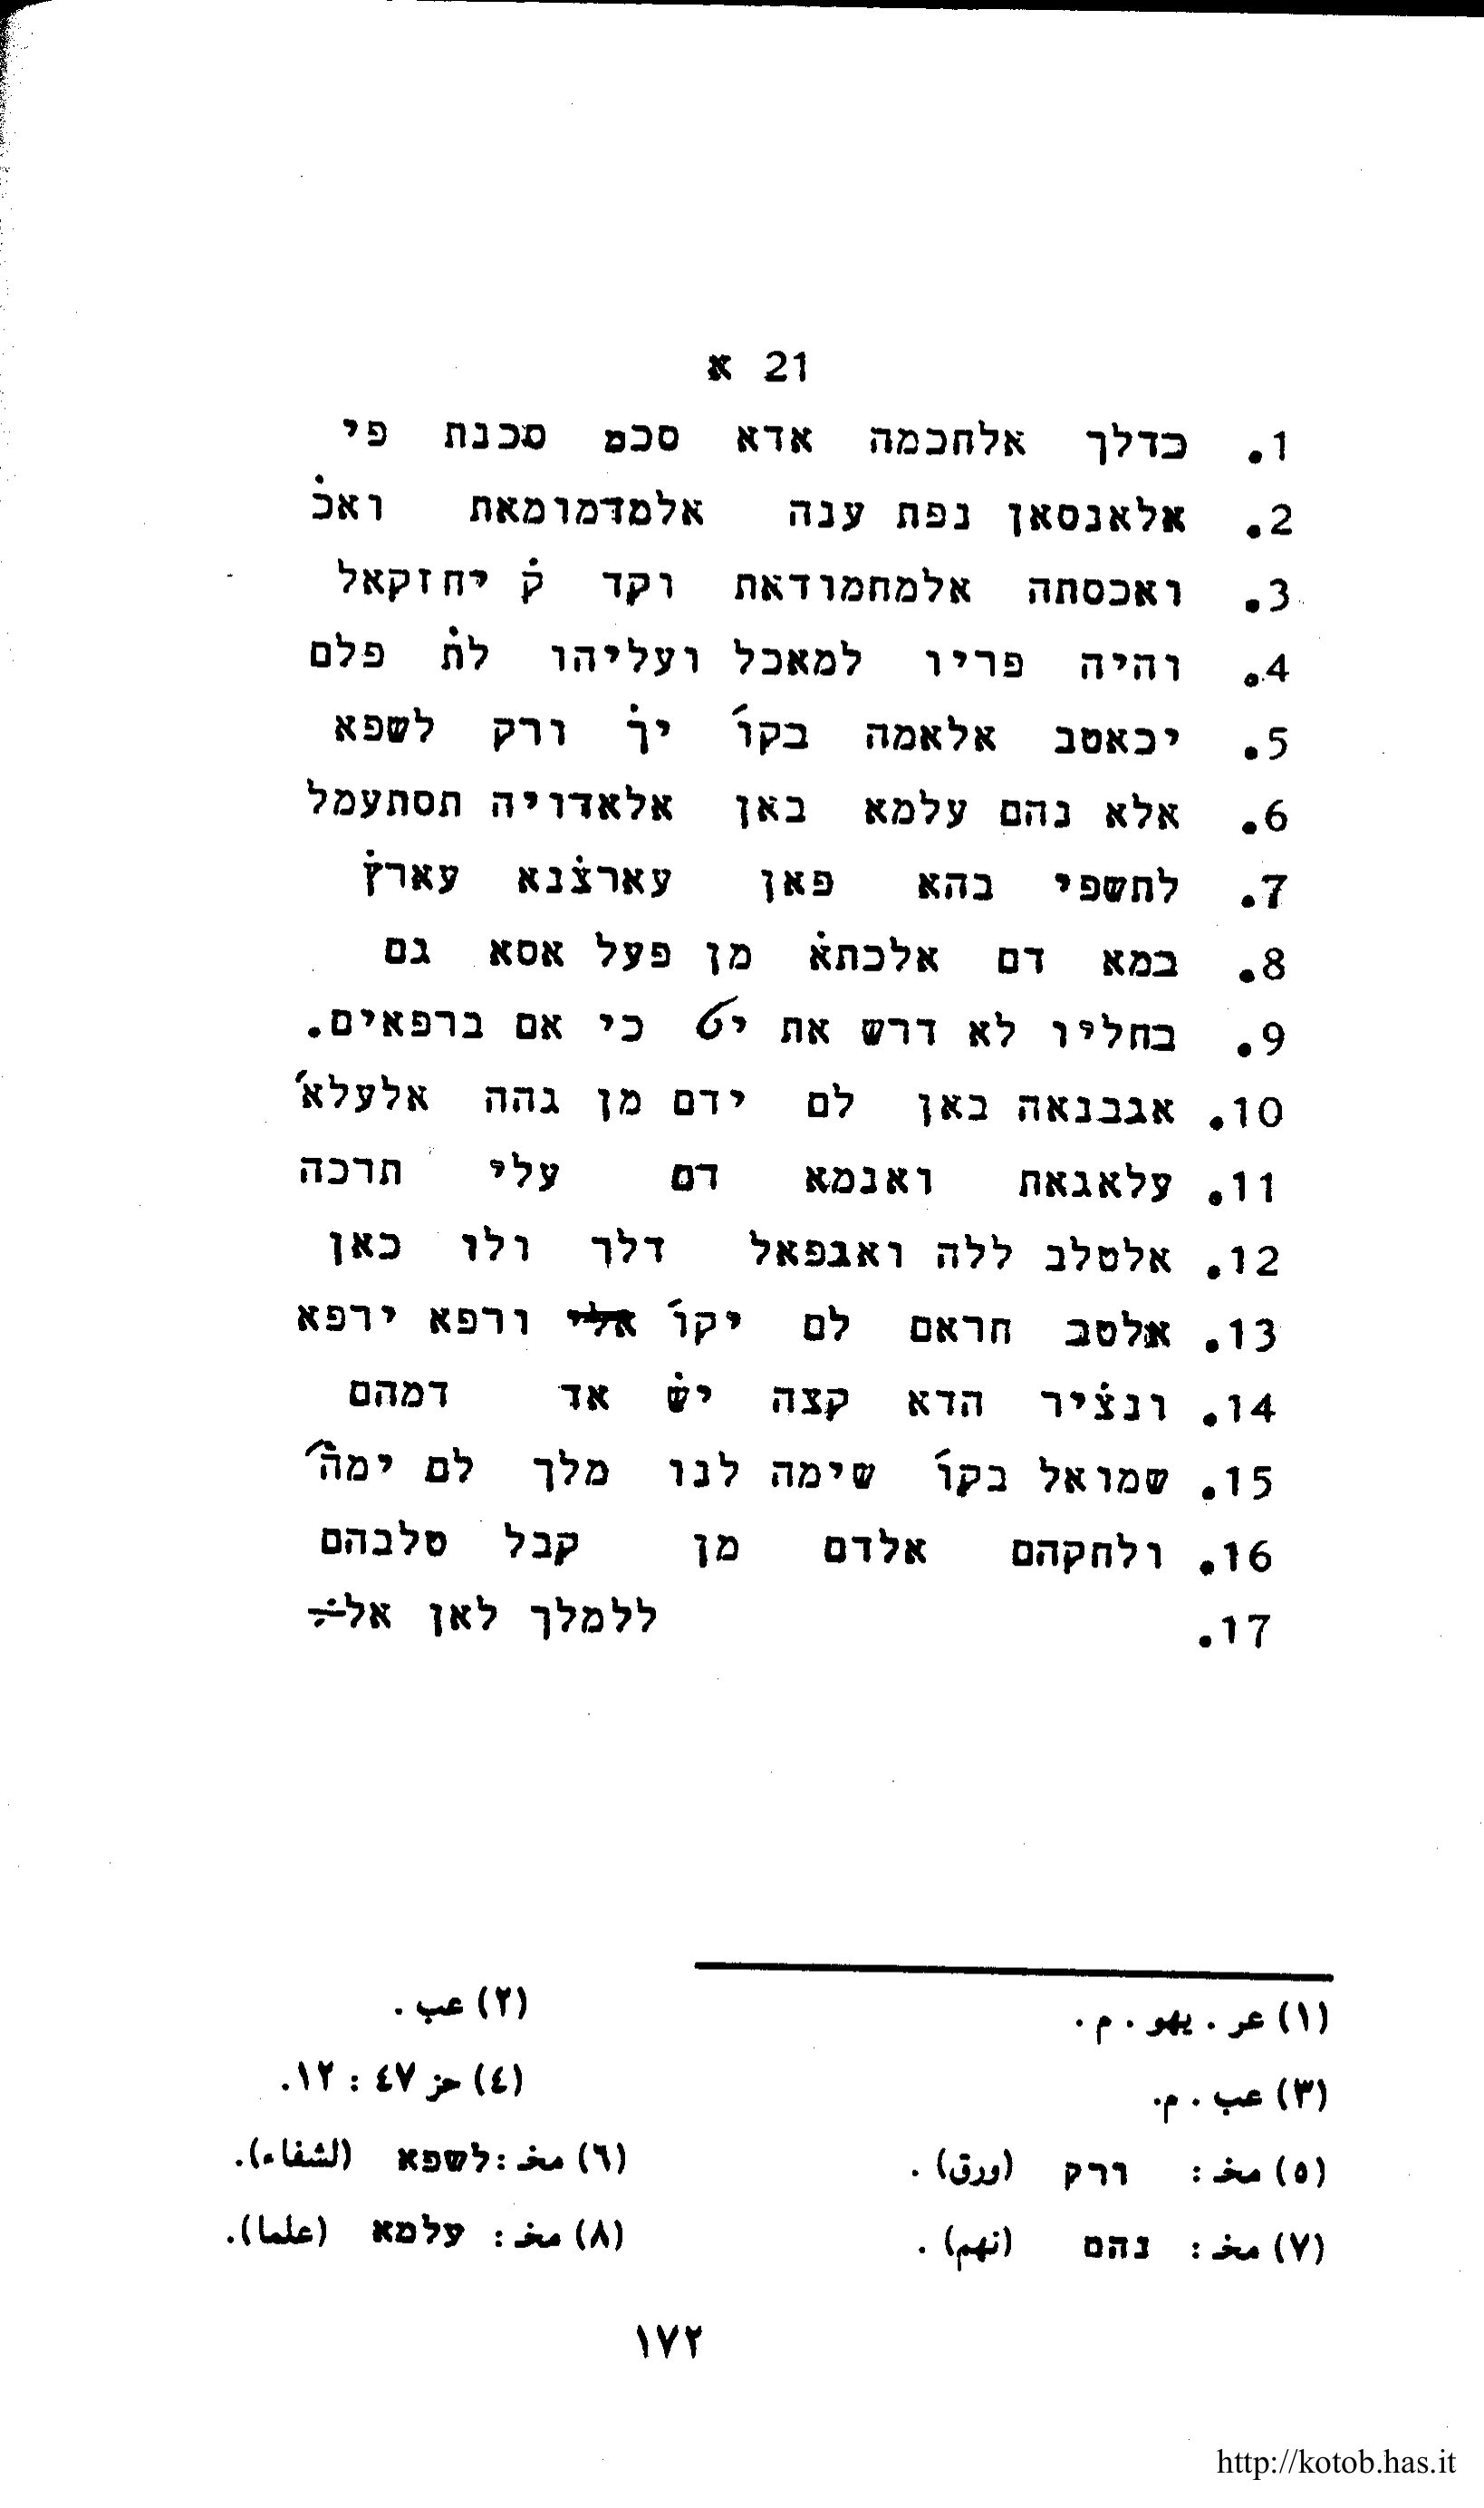 21 א
1. כדלך אלחכמה אדא סכם סכנת פי
2. אלאנסאן נפת ענה אלמדמומאת ואכ̇
3. ואכסתה אלמחמודאת וקד ק̇ יחזקאל
4. והיה פריו למאכל ועליהו לת̇ פלם
5. יכאטב אלאמה בקו׳ יך̇ ורק לשפא
6. אלא נהם עלמא באן אלאדויה תסתעמל
7. לתשפי בהא פאן עארצ̇נא עארץ̇
8. במא דם אלכתא̇ מן פעל אסא גם
9. בחליו לא דרש את כי אם ברפאים.
10. אגבנאה באן לם ידם מן גהה אלעלא׳
11. עלאגאת ואנמא דם עלי תרכה
12. אלטלב ללה ואגפאל דלך ולו כאן
13. אלטב חראם לם יקו׳ ורפא ירפא
14. ונצ̇יר הדא קצה יש̇ אד דמהם
15. שמואל בקו׳ שימה לנו מלך לם ימה̇׳
16. ולחקהם אלדם מן קבל טלבהם
17. ללמלך לאן
(١) عر . يهو . م .
(٢) عب .
(٣) عب . م.
(٤) حز ٤٧ : ١٢.
(٥) مخـ : ררק (ورق) .
(٦) مخـ : לשפא (لشفاء).
(٧) مخـ : נהם (نهم) .
(٨) مخـ : עלמא (علما).
١٧٢
http://kotob.has.it